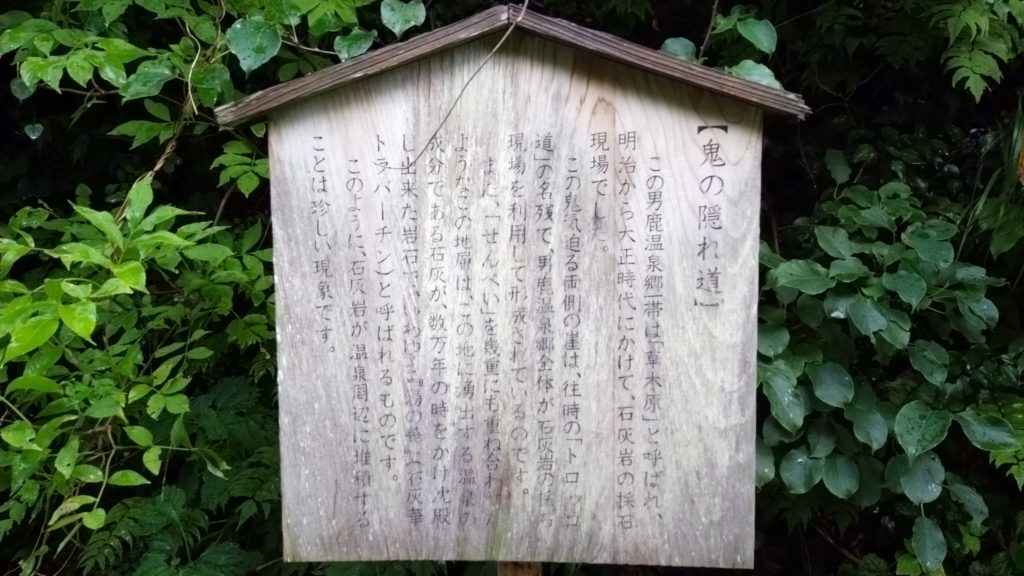 【鬼の隠れ道】
この男鹿温泉郷一帯は「草木原」と呼ばれ、
明治から大正時代にかけて、石灰岩の採石
現場でした。
この鬼気迫る両側の崖は、往時の「トロッコ
道」の名残で、男鹿温泉郷全体が石灰岩の採石
現場を利用して形成されているのです。
また、「せんべい」を幾重にも重ね合わ
ようなこの地層は、この地に湧出する温泉の
成分である石灰が、数万年の時をかけ沈殿
し出来た岩石で、いわゆる の華」（石灰華
トラバーチン）と呼ばれるものです。
このように、石灰岩が温泉周辺に堆積する
ことは珍しい現象です。